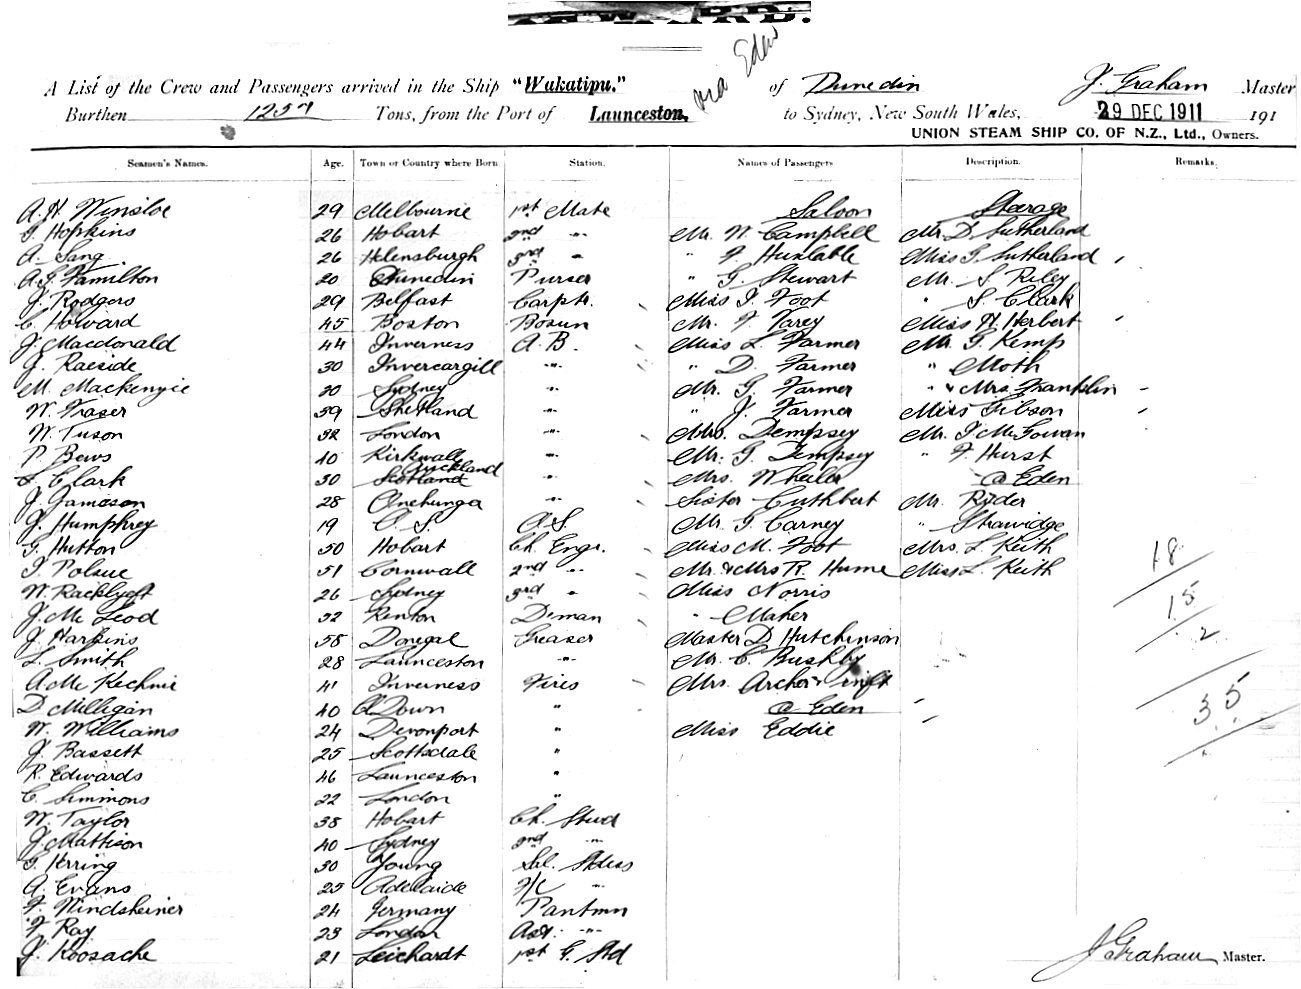 via Eden
A List of the Crew and Passengers arrived in the Ship "Wakatipu." of Dunedin J. Graham Master
Burthen 1257 Tons, from the Port of Launceston, to Sydney, New South Wales, 29 DEC 1911 191
UNION STEAM SHIP CO. OF N.Z., Ltd., Owners.
Seamen's Names. Age. Town or Country where Born Station. Names of Passengers Description. Remarks.
A. H. Winsloe 29 Melbourne 1st Mate Saloon Steerage
T. Hopkins 26 Hobart 2nd " Mr. W. Campbell Mr. D. Sutherland
A. Sang 26 Helensburgh 3rd " " F. Huxtable Miss G. Sutherland
A. G. Familton 20 Dunedin Purser " G. Stewart Mr. S. Riley
J. Rodgers 29 Belfast Carptr. Miss I. Foot " S. Clark
C. Howard 45 Boston Bosun Mr. F. Varey Miss H. Herbert
J. Macdonald 44 Inverness A.B. Miss L. Farmer Mr. G. Kemp
J. Raeside 30 Invercargill " " D. Farmer " Moth
M. Mackenzie 20 Sydney " Mr. G. Farmer " & Mrs. Franklin
W. Fraser 39 Shetland " " J. Farmer Miss Gibson
W. Tuson 32 London " Mrs. Dempsey Mr. J. McGowan
P. Bews 40 Kirkwall " Mr. G. Dempsey " F. Hurst
L. Clark 30 Scotland Auckland " Mrs. Wheeler @ Eden
J. Jameson 28 Onehunga " Sister Cuthbert Mr. Ryder
J. Humphrey 19 A. S. O.S. Mr. G. Carney " Strawidge
G. Hutton 50 Hobart Ch. Engr. Miss M. Foot Mrs. L. Keith
J. Polsue 51 Cornwall 2nd " Mr. & Mrs R. Hume Miss L. Keith 18
W. Racklyeft 26 Sydney 3rd " Miss Norris
J. Mc Leod 32 Renton D'man " Maher 15
J. Harkins 58 Donegal Greaser Master D. Hutchinson 2
L. Smith 28 Launceston " Mr. C. Bushby
A. Mc Kechnie 41 Inverness Fires Mrs. Archer & inft
D. Milligan 40 Co Down " @ Eden 35
W. Williams 24 Devonport " Miss Eddie
J. Bassett 25 Scottsdale "
R. Edwards 46 Launceston "
C. Simmons 22 London "
W. Taylor 38 Hobart Ch. Stwd
J. Mattison 40 Sydney 2nd "
G. Herring 30 Young Sal. Stdess
A. Evans 25 Adelaide F/C "
F. Windsheimer 24 Germany Pantmn
F. Ray 23 London Asst. "
J. Koosache 21 Leichardt 1st G. Std J Graham Master.